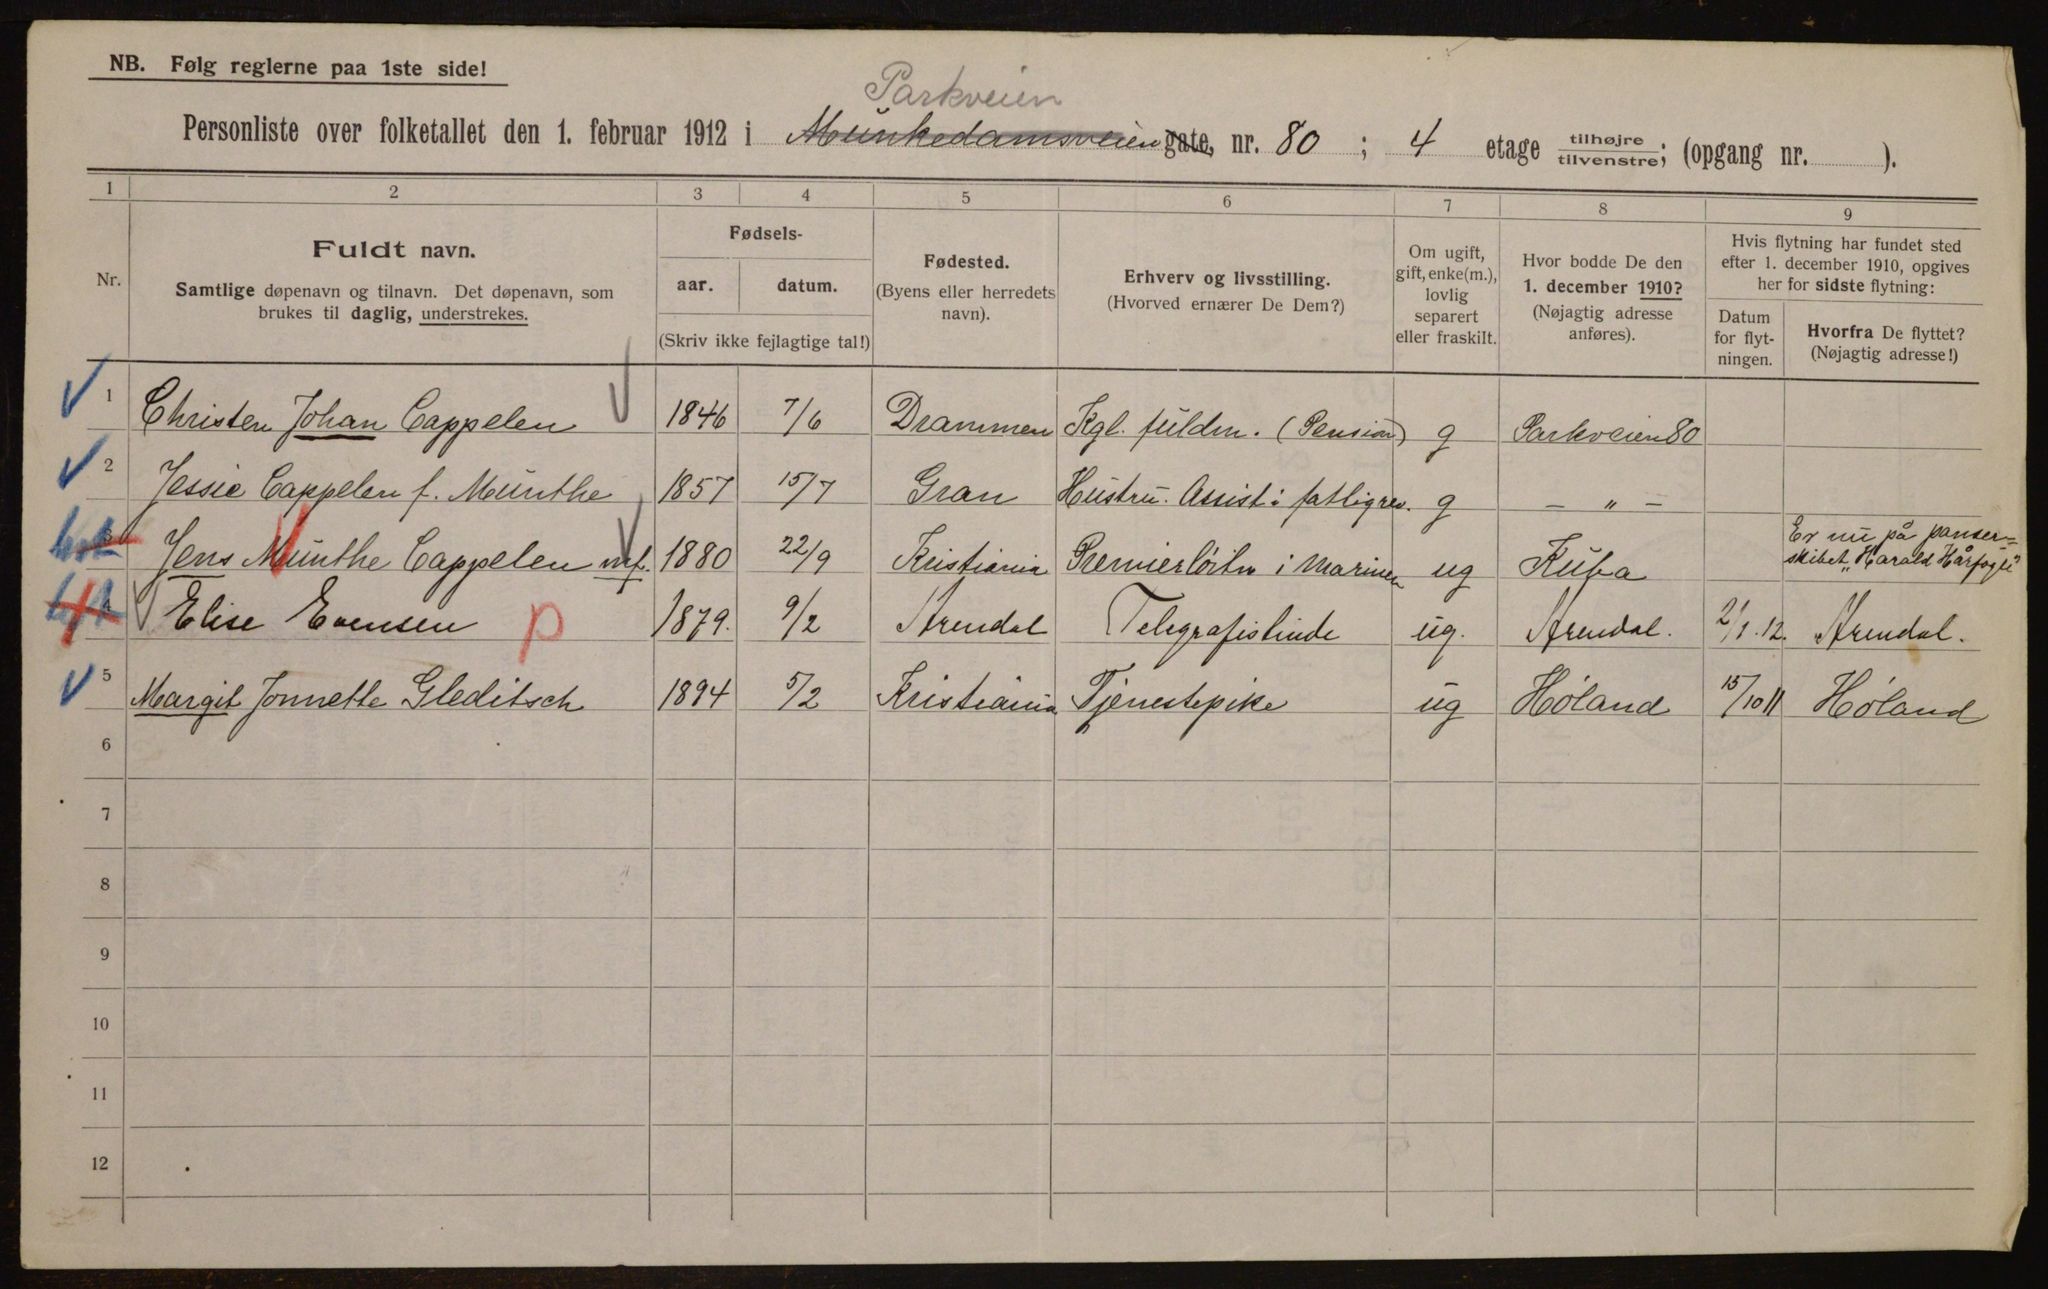 NB. Følg reglerne paa 1ste side!
Parkveien
Personliste over folketallet den 1. februar 1912 i Munkedamsveien gate, nr. 80 ; 4 etage tilhøjre/tilvenstre; (opgang nr. ).
1 2 3 4 5 6 7 8 9
Nr.
Fuldt navn.
Samtlige døpenavn og tilnavn. Det døpenavn, som
brukes til daglig, understrekes.
Fødsels-
aar. datum.
(Skriv ikke fejlagtige tal!)
Fødested.
(Byens eller herredets
navn).
Erhverv og livsstilling.
(Hvorved ernærer De Dem?)
Om ugift,
gift, enke(m.),
lovlig
separert
eller fraskilt.
Hvor bodde De den
1. december 1910?
(Nøjagtig adresse
anføres).
Hvis flytning har fundet sted
efter 1. december 1910, opgives
her for sidste flytning:
Datum
for flyt-
ningen.
Hvorfra De flyttet?
(Nøjagtig adresse!)
1 Christen Johan Cappelen 1846 7/6 Drammen Kgl. fuldm. (Pension) g Parkveien 80
2 Jessie Cappelen f. Munthe 1857 15/7 Gran Hustru. Assist i fattigvev. g — „ —
3 Jens Munthe Cappelen mf. 1880 22/9 Kristiania Premierløitn i Marinen ug Kuba Er nu på panser=
skibet „Harald Hårfagre"
4 Elise Evensen p 1879. 9/2 Arendal Telegrafistinde ug. Arendal. 2/1.12. Arendal.
5 Margit Jonnette Gleditsch 1894 5/2 Kristiania Tjenestepike ug Høland 15/10 11 Høland
6
7
8
9
10
11
12